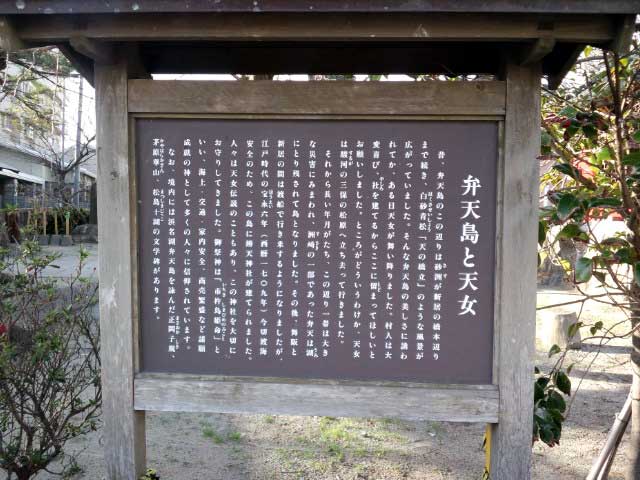 弁天島と天女
昔、弁天島のこの辺りは砂洲が新居の橋本辺り
まで続き、白砂青松「天の橋立」のような風景が
広がっていました。そんな弁天島の美しさに誘わ
れてか、ある日天女が舞い降りました。村人は大
変喜び、社を建てるからここに留まってほしいと
お願いしました。ところがどういうわけか、天女
は駿河の三保の松原へ立ち去って行きました。
それから長い年月がたち、この辺り一帯は大き
な災害にみまわれ、洲崎の一部であった弁天は湖
にとり残されて島となりました。その後、舞阪と
新居の間は渡船で行き来するようになりましたが、
江戸時代の宝永六年（西暦一七〇九年）今切渡海
安全のため、この島に辨天神社が建てられました。
人々は天女伝説のこともあり、この神社を大切に
お守りしてきました。御祭神は「市杵島姫命」と
いい、海上、交通、家内安全、商売繁盛など諸願
成就の神として多くの人々に信仰されています。
なお、境内には浜名湖弁天島を詠んだ正岡子規、
茅原華山、松島十湖の文学碑があります。